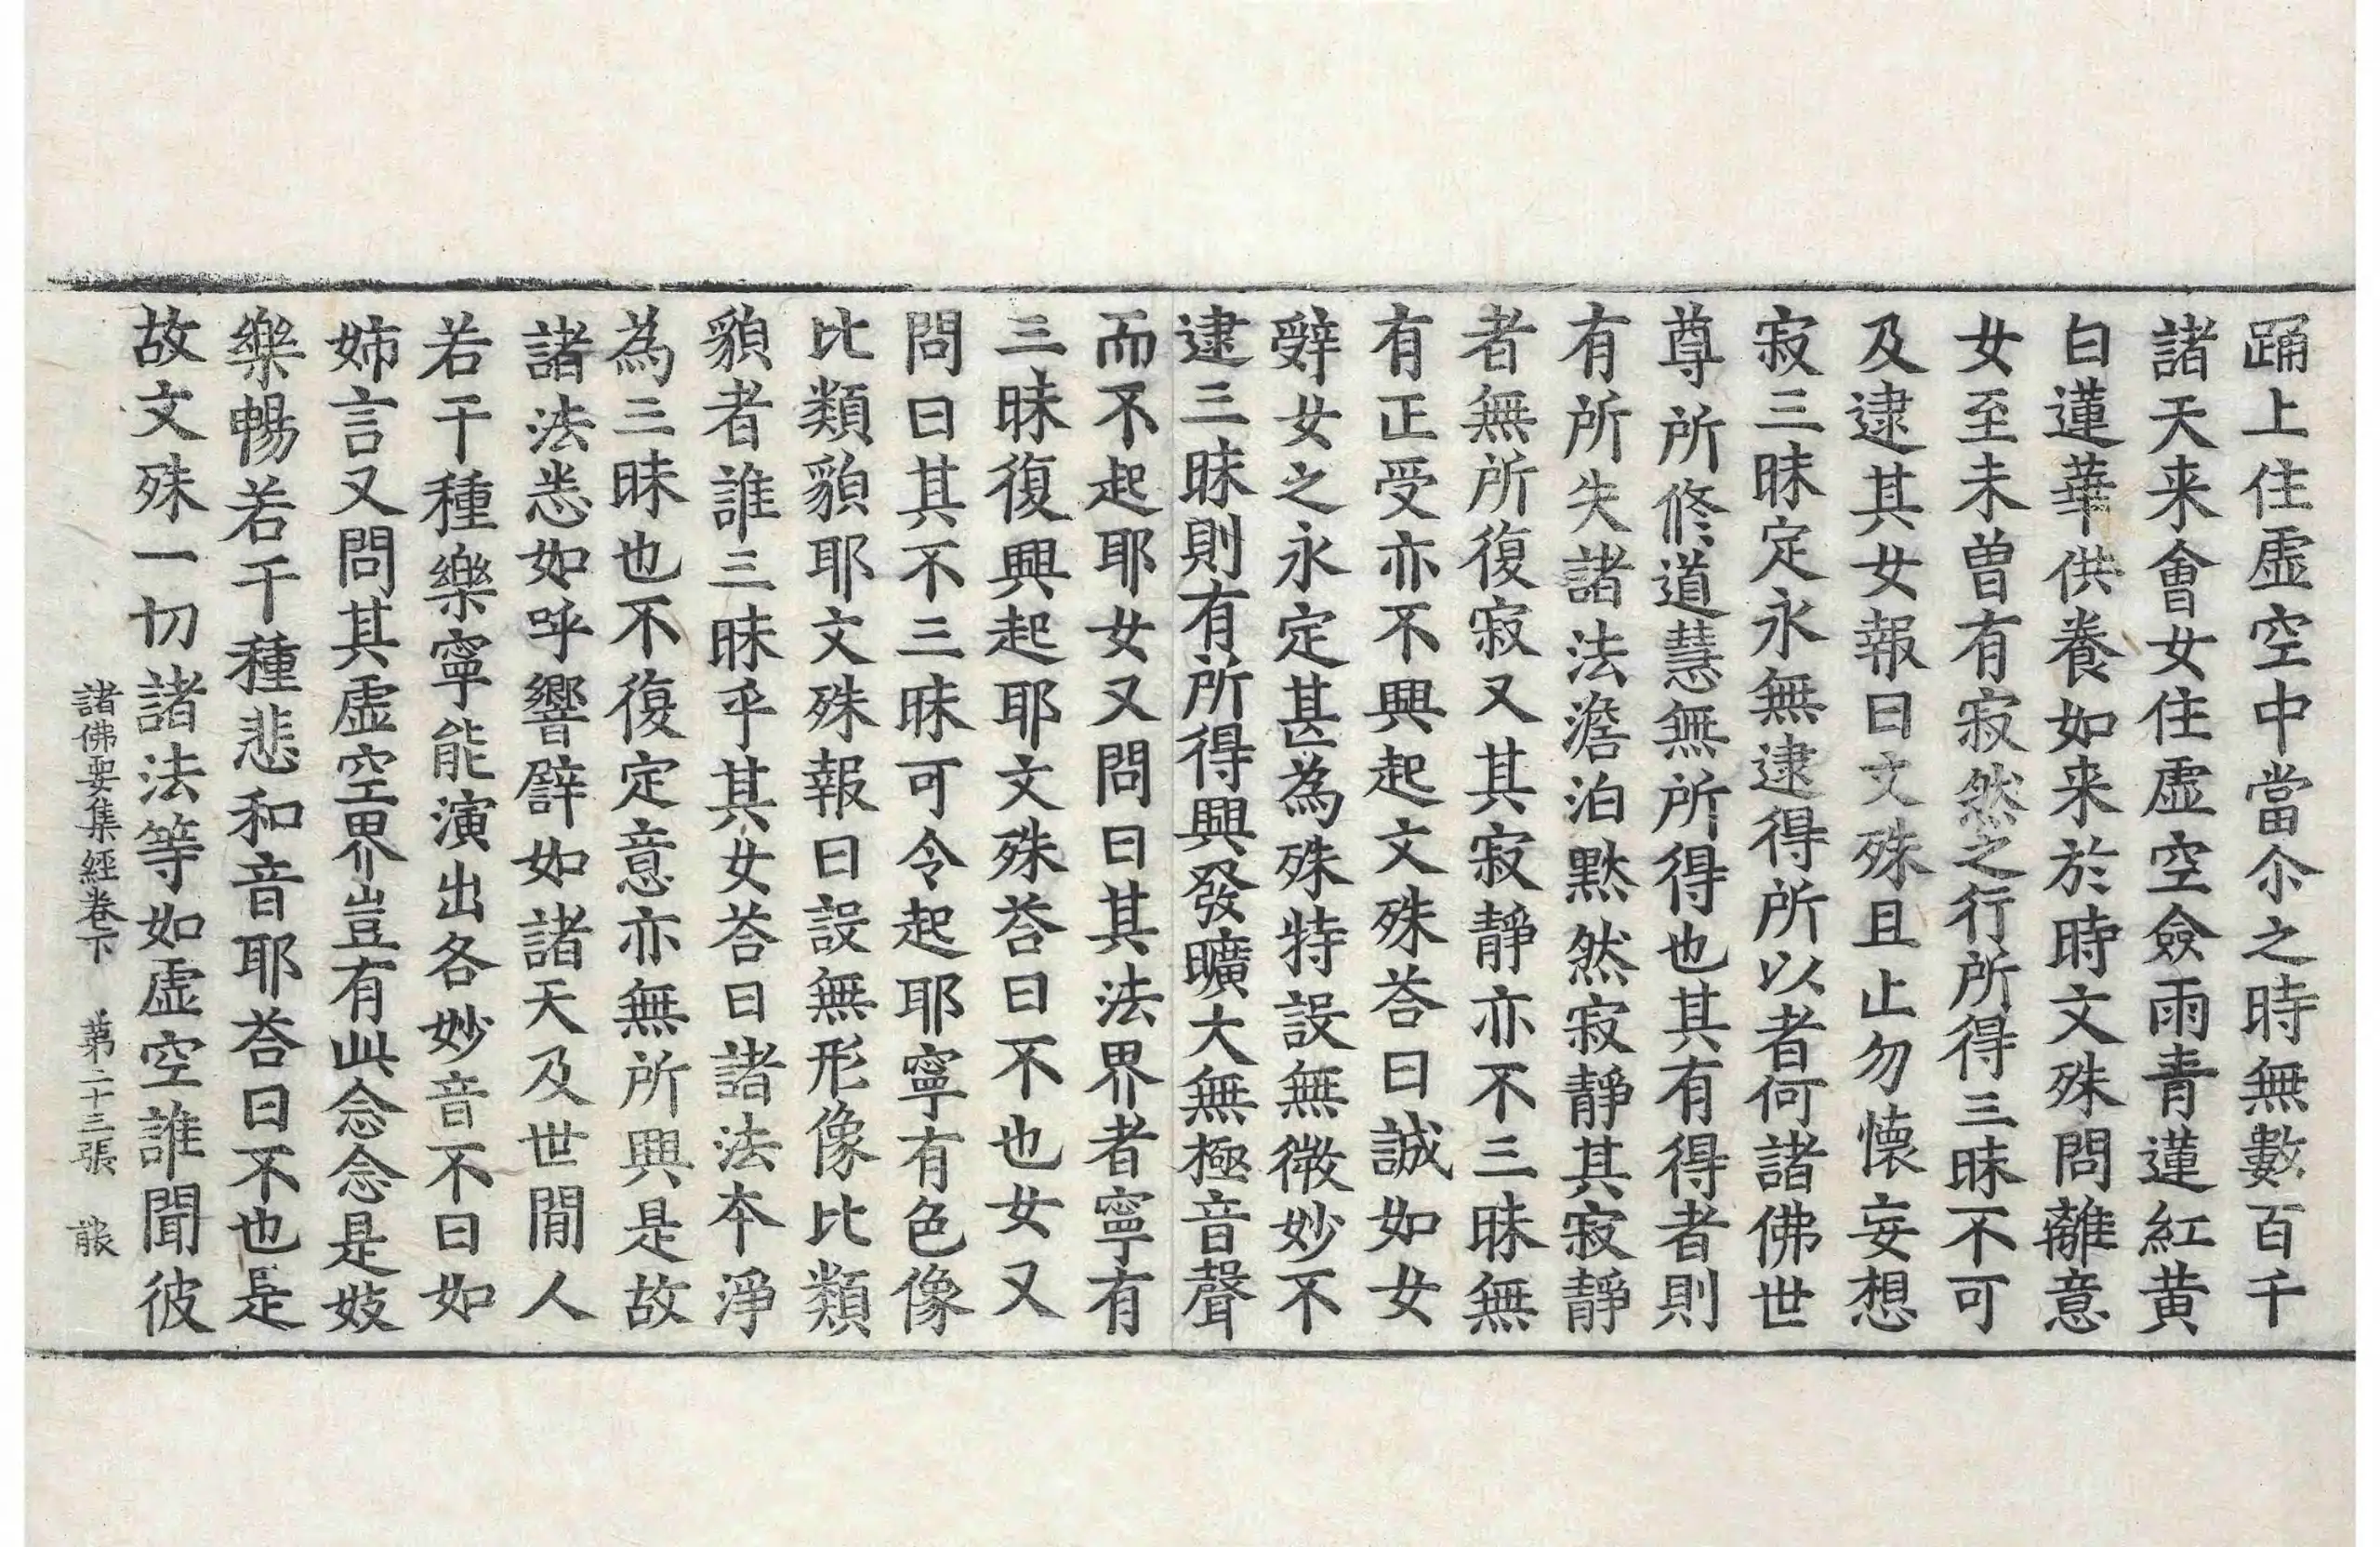 踊上住虛空中當尒之時無數百千
諸天来會女住虛空僉雨青蓮紅黄
白蓮華供養如来於時文殊問離意
女至未曽有寂然之行所得三昧不可
及逮其女報曰文殊且止勿懷妄想
寂三昧定永無逮得所以者何諸佛世
尊所修道慧無所得也其有得者則
有所失諸法澹泊黙然寂靜其寂靜
者無所復寂又其寂靜亦不三昧無
有正受亦不興起文殊荅曰誠如女
辤女之永定甚為殊特設無微妙不
逮三昧則有所得興發曠大無極音聲
而不起耶女又問曰其法界者寧有
三昧復興起耶文殊荅曰不也女又
問曰其不三昧可令起耶寧有色像
比類貌耶文殊報曰設無形像比類
貌者誰三昧乎其女荅曰諸法本淨
為三昧也不復定意亦無所興是故
諸法悉如呼響辟如諸天及世閒人
若干種樂寧能演出各妙音不曰如
姉言又問其虛空界豈有此念念是妓
樂暢若干種悲和音耶荅曰不也是
故文殊一切諸法等如虛空誰聞彼
諸佛要集經卷下 第二十三張